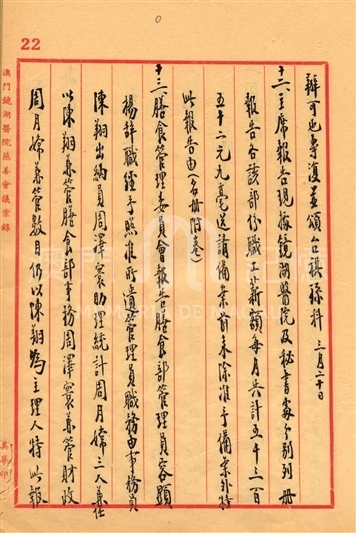 22
澳門鏡湖醫院慈善會議案錄
辦可也專復並頌台祺 孫科 三月二十日
十二、主席報告現據鏡湖醫院及秘書處分別列冊
報告各該部份職工薪額每月共計五千三百
五十二元九毫送請備案前來除准予備案外特
此報告由(名冊附卷)
十三、膳食管理委員會報告膳食部管理員容顯
楊辭職經予照准所遺管理員職務由事務員
陳翔出納員周澤寰助理統計周月嫦三人兼任
以陳翔兼管膳食部事務周澤寰兼管財政
周月嫦兼管數目仍以陳翔為主理人特此報